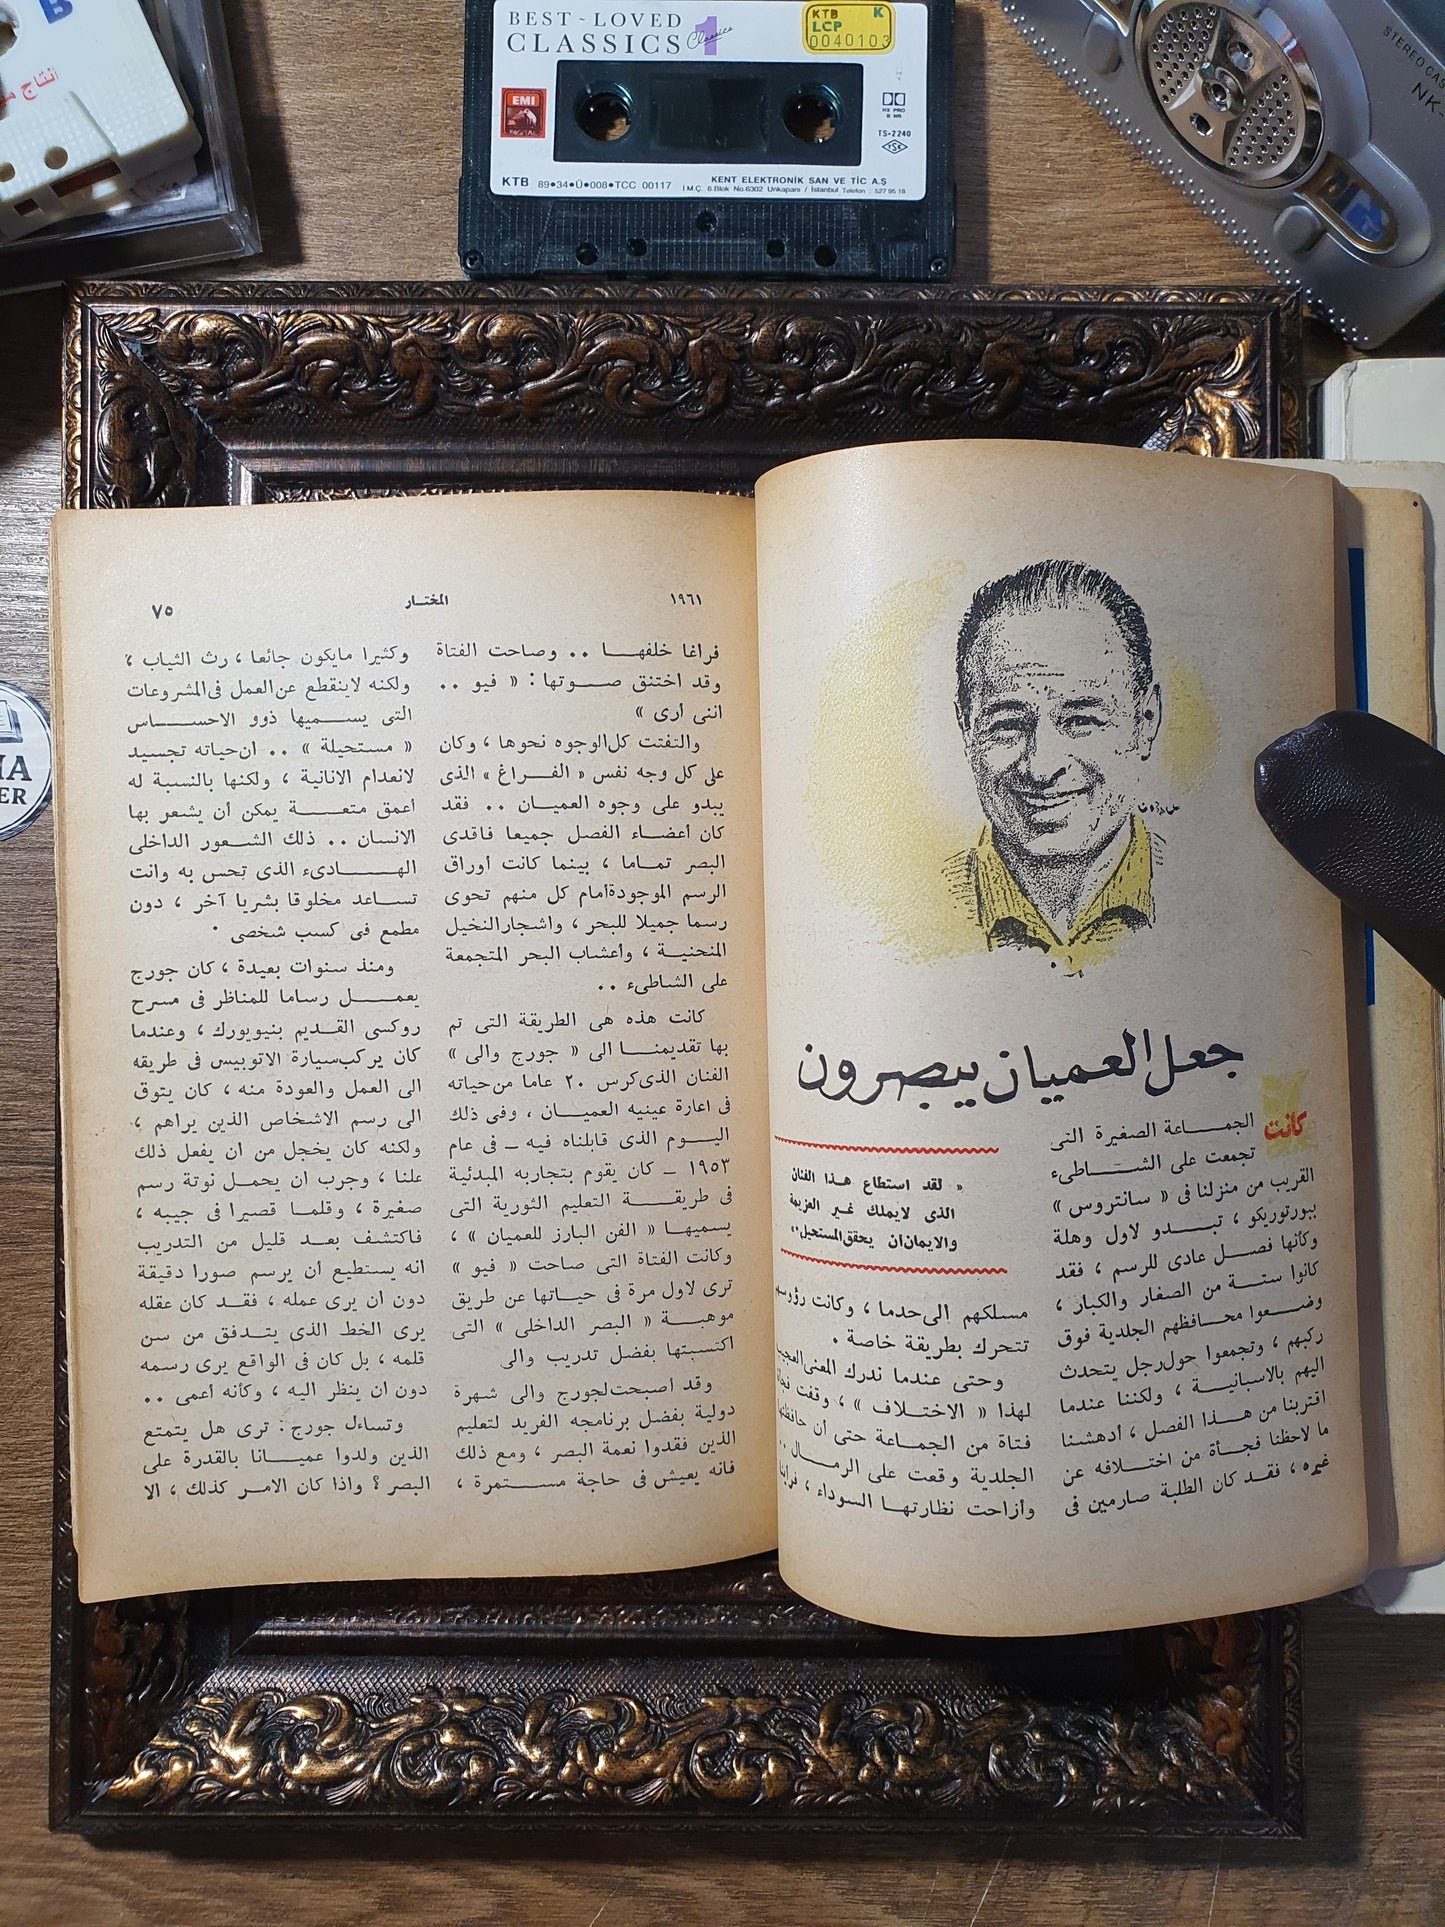 BEST ~ LOVED
CLASSICS 1
Classics
KTB K
LCP
0040103
EMI
DIGITAL
HX PRO
B NR
TS-2240
TSE
KTB 89•34•Ü•008•TCC 00117
KENT ELEKTRONİK SAN VE TİC A.Ş
İ.M.Ç. 6.Blok No.6302 Unkapanı / İstanbul Telefon : 527 95 18
B
انتاج
STEREO CAS
NK-
IA
ER
جعل العميان يبصرون
كانت
الجمـــاعة الصغيرة التى
تجمعت على الشـــــاطىء
القريب من منزلنا فى « سانتروس »
ببورتوريكو ، تبـــــدو لاول وهلة
وكأنها فصـــل عادى للرسم ، فقد
كانوا ستـــة من الصغار والكبار ،
وضـــعوا محـــافظهم الجلدية فوق
ركبهم ، وتجمعوا حول رجل يتحدث
اليهم بالاسبانيـــة ، ولكننا عندما
اقتربنا من هـــذا الفصل ، أدهشنا
ما لاحظنا فجـــأة من اختـــلافه عن
غيره ، فقد كان الطلبة صارمين فى
« لقد استطاع هـذا الفنان
الذى لايملك غير العزيمة
والايمان ان يحقق المستحيل »
مسلكهم الى حد ما ، وكانت
تتحرك بطريقة خاصة .
وحتى عندما ندرك المعنى
لهذا « الاختـــلاف » ، وقفت
فتاة من الجماعة حتى أن
الجلدية وقعت على الرمـــال ..
وأزاحت نظارتهـــا السوداء ،
١٩٦١
المختـار
٧٥
فراغا خلفهـــــا .. وصاحت الفتاة
وقد اختنق صـــوتها : « فيو ..
اننى أرى »
والتفتت كل الوجوه نحوها ، وكان
على كل وجه نفس « الفـــراغ » الذى
يبدو على وجوه العميـــان .. فقد
كان أعضـــاء الفصل جميعا فاقدى
البصر تمـــاما ، بينما كانت أوراق
الرسم الموجودة أمام كل منهم تحوى
رسما جميلا للبحر ، واشجار النخيل
المنحنيـــة ، وأعشاب البحر المتجمعة
على الشاطىء ..
كانت هذه هى الطريقة التى تم
بها تقديمنـــــا الى « جورج والى »
الفنان الذى كرس ٢٠ عاما من حياته
فى اعارة عينيه العميـــان ، وفى ذلك
اليـــوم الذى قابلناه فيه ــ فى عام
١٩٥٣ ــ كان يقوم بتجاربه المبدئية
فى طريقـــــة التعليم الثورية التى
يسميهـــا « الفن البارز للعميان » ،
وكانت الفتاة التى صاحت « فيو »
ترى لاول مرة فى حيـــاتها عن طريق
موهبـــة « البصر الداخلى » التى
اكتسبتها بفضل تدريب والى
وقد أصبحت لجورج والى شهرة
دولية بفضل برنامجه الفريد لتعليم
الذين فقدوا نعمة البصر ، ومع ذلك
فانه يعيش فى حاجة مســـتمرة ،
وكثيرا مايكون جائعا ، رث الثياب ،
ولكنه لاينقطع عن العمل فى المشروعات
التى يســـميها ذوو الاحســـــاس
« مستحيلة » .. ان حياته تجسيد
لانعدام الانانية ، ولكنها بالنسبة له
أعمق متعـــة يمكن أن يشعر بها
الانسان .. ذلك الشـــعور الداخلى
الهـــــادىء الذى تحس به وانت
تســـاعد مخلوقا بشريا آخر ، دون
مطمع فى كسب شخصى .
ومنذ سنوات بعيدة ، كان جورج
يعمـــــل رساما للمناظر فى مسرح
روكسى القـــديم بنيويورك ، وعندما
كان يركب سيارة الاتوبيس فى طريقه
الى العمل والعودة منه ، كان يتوق
الى رسم الاشخاص الذين يراهم ،
ولكنه كان يخجل من ان يفعل ذلك
علنا ، وجرب ان يحمـــل نوتة رسم
صغيرة ، وقلمـــا قصيرا فى جيبه ،
فاكتشف بعـــد قليل من التدريب
انه يستطيع ان يرسم صورا دقيقة
دون ان يرى عمله ، فقـــد كان عقله
يرى الخط الذى يتـــدفق من سن
قلمه ، بل كان فى الواقع يرى رسمه
دون ان ينظر اليه ، وكأنه أعمى ..
وتساءل جورج : ترى هل يتمتع
الذين ولدوا عميـــانا بالقدرة على
البصر ؟ واذا كان الامـــر كذلك ، الا